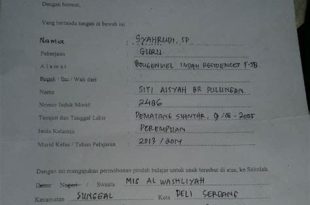 Dengan hormat,
Yang bertanda tangan di bawah ini
Nama : SYAHRUDI, SP
Pekerjaan : GURU
Alamat : BOUGENVIL INDAH RESIDENCES
Bapak / Ibu / Wali dari
Nama : SITI AISYAH BR PULUNGAN
Nomor Induk Murid : 2486
Tempat dan Tanggal Lahir : PEMATANG SIANTAR,
Jenis Kelamin : PEREMPUAN
Murid Kelas / Tahun Pelajaran : 2013 / 2014
Dengan ini mengajukan permohonan pindah belajar untuk anak tersebut di atas, ke Sekolah
Negeri / Swasta MIS AL WASHLIYAH
Kecamatan SUNGGAL Kota DELI SERDANG